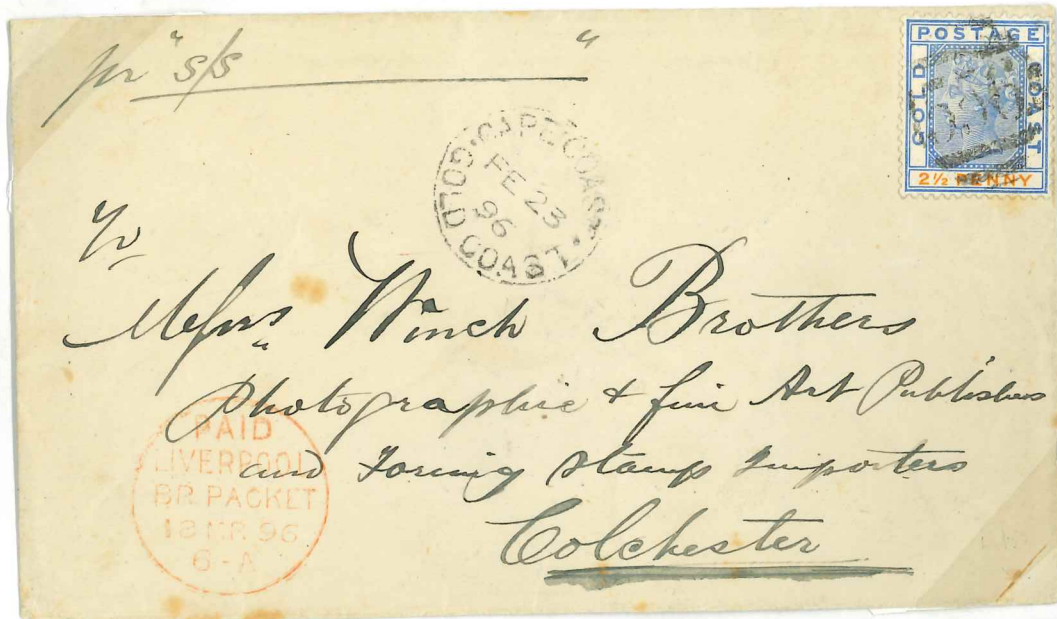 pr "s/s "
POSTAGE
GOLD COAST
2½ PENNY
CAPE COAST
FE 23
96
GOLD COAST
To
Messrs Winch Brothers
Photographic & fine Art Publishers
and Foring Stamps Importers
Colchester
PAID
LIVERPOOL
BR. PACKET
18 MR 96
6-A